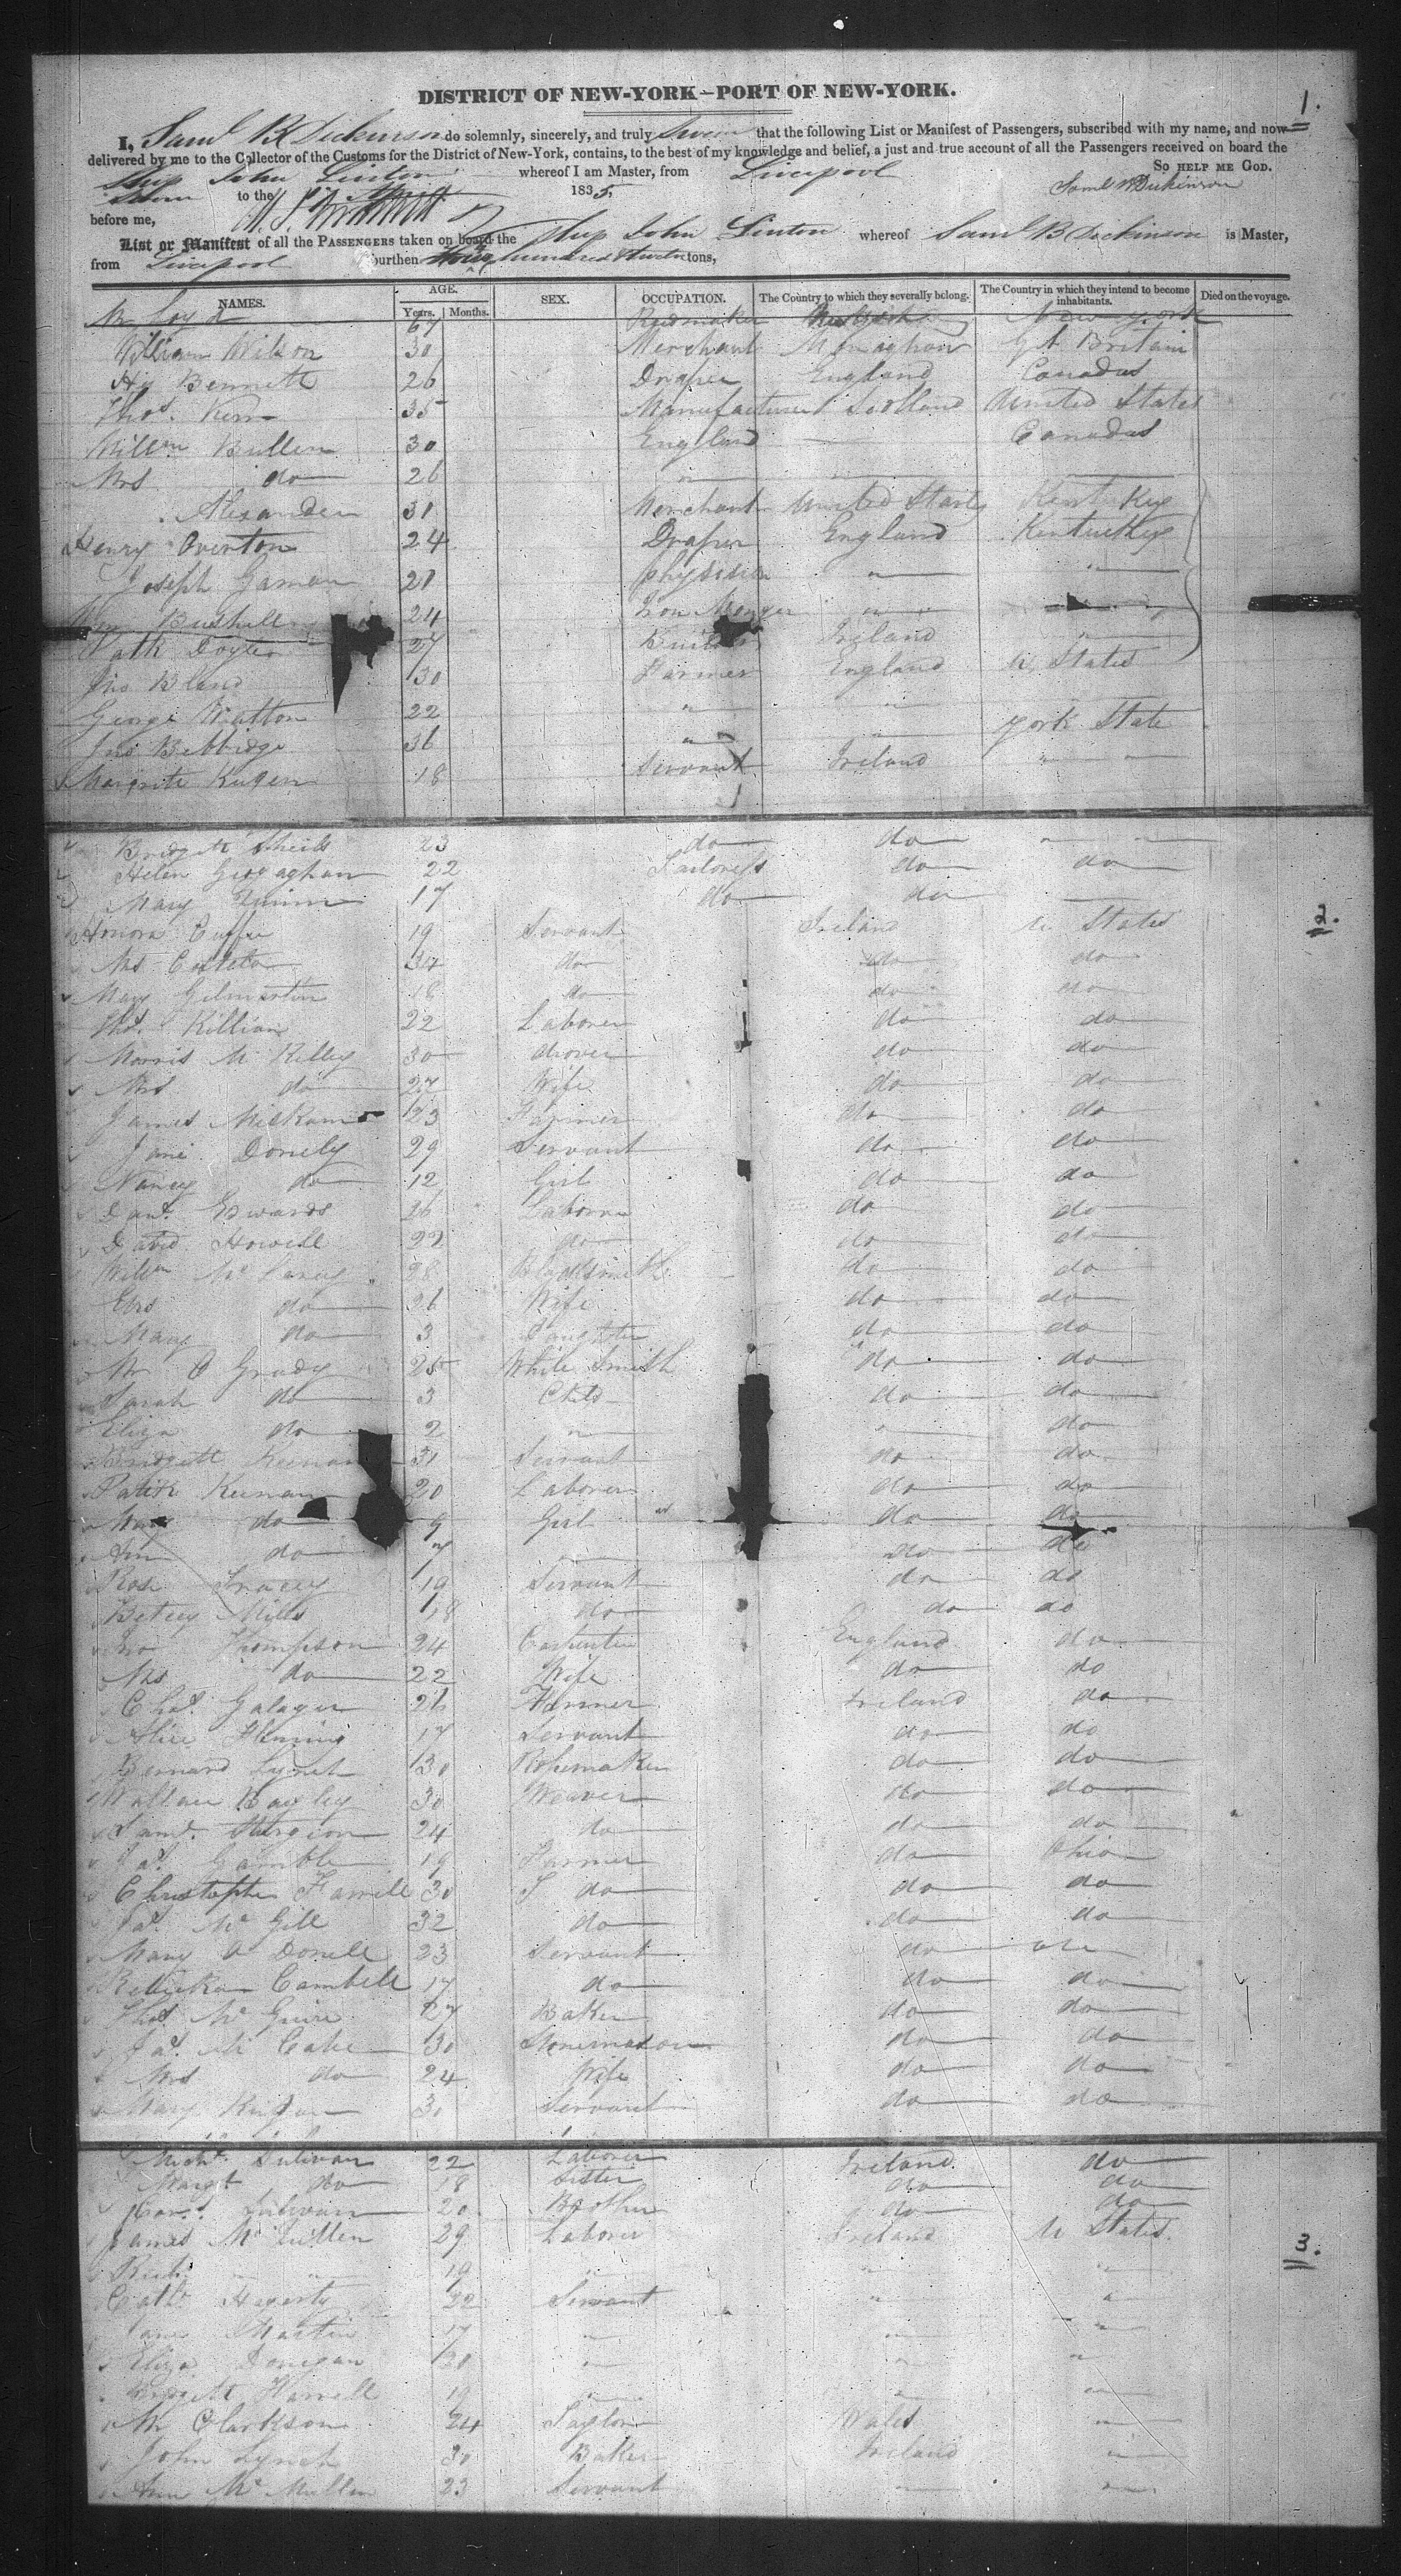 1.
DISTRICT OF NEW-YORK—PORT OF NEW-YORK.
I, Saml B Dickinson do solemnly, sincerely, and truly Swear that the following List or Manifest of Passengers, subscribed with my name, and now
delivered by me to the Collector of the Customs for the District of New-York, contains, to the best of my knowledge and belief, a just and true account of all the Passengers received on board the
Ship John Linton whereof I am Master, from Liverpool So HELP ME GOD.
Sworn to the 1835. Saml B Dickinson
before me,
List or Manifest of all the PASSENGERS taken on board the Ship John Linton whereof Saml B Dickinson is Master,
from Liverpool burthen tons,
NAMES. AGE. Years. Months. SEX. OCCUPATION. The Country to which they severally belong. The Country in which they intend to become inhabitants. Died on the voyage.
Mr Loyd 67 Reedmaker New York
William Wilson 30 Merchant Monaghan Gt Britain
Hy Bennett 26 Draper England Canadas
Thos. Kerr 35 Manufacturer Scotland United States
Willm Bullen 30 England — Canadas
Mrs do 26 " — —
Alexander 31 Merchant United States Kentuckey
Henry Overton 24 Draper England Kentuckey
Joseph Garman 21 Physician " "
Wm Bushill 24 Iron Monger " "
Patk Doyle 27 Builder Ireland "
Jno Bland 30 Farmer England U. States
George Watton 22 " "
Jno Bebbidge 36 " — York State
Margrite Keegen 18 Servant Ireland " "
Bridgett Sheils 23 do do " "
Helen Geogaghan 22 Tailoress do do
Mary Quinn 17 do do —
2.
Honora Cuffe 19 Servant Ireland U States
Ms Costelo 34 do do do
Mary Gilmartin 18 do do do
Thos. Killian 22 Laborer do do
Morris Mc Kelley 30 drover do do
Mrs do 27 Wife do do
James 23 Farmer do do
Jane Donely 29 Servant do do
Nancy do 12 Girl do do
Danl. Edwards 26 Laborer do do
David Howell 22 do do do
Willm Mc 28 Blacksmith do do
Mrs do 26 Wife do do
Mary do 3 Daughter do do
Mr O Grady 25 White Smith do do
Sarah do 3 Child do do
Eliza do 2 " " do
Bridgett Keenan 31 Servant do do
Patck Keenan 20 Laborer do do
Mary do 9 Girl do do
Ann do 7 do do
Rose Tracey 19 Servant do do
Betsey Mills 18 do do do
Jno Thompson 24 Carpenter England do
Mrs do 22 Wife do do
Chas. Galager 26 Farmer Ireland do
Alice Fleming 17 Servant do do
Bernard Lynch 30 Ropemaker do do
Wallace Bagley 30 Weaver do do
Saml. Sturgion 24 do do do
Jas. Gamble 19 Farmer do Ohio
Christopher Farrell 30 do do do
Jas. Mc Gill 32 do do do
Mary O Donell 23 Servant do do
Rebecka Cambell 17 do do do
Thos. Mc Guire 27 Baker do do
Jas. Mc Cabe 30 Stonemason do do
Mrs do 24 Wife do do
Mary 30 Servant do do
Michl. Sulivan 22 Laborer Ireland do
Margt do 18 Sister do do
Sulivan 20 Brother do do
3.
James Mc 29 Laborer Ireland U States.
" 19 " " "
Cath. Hagerty 22 Servant " "
Jane Martin 17 " " "
Eliza Donegan 30 " " "
Bridgett Harrell 19 " " "
Mr Clarkson 24 Taylor Wales "
John Lynch 30 Baker Ireland "
Ann Mc Mullen 23 Servant " "